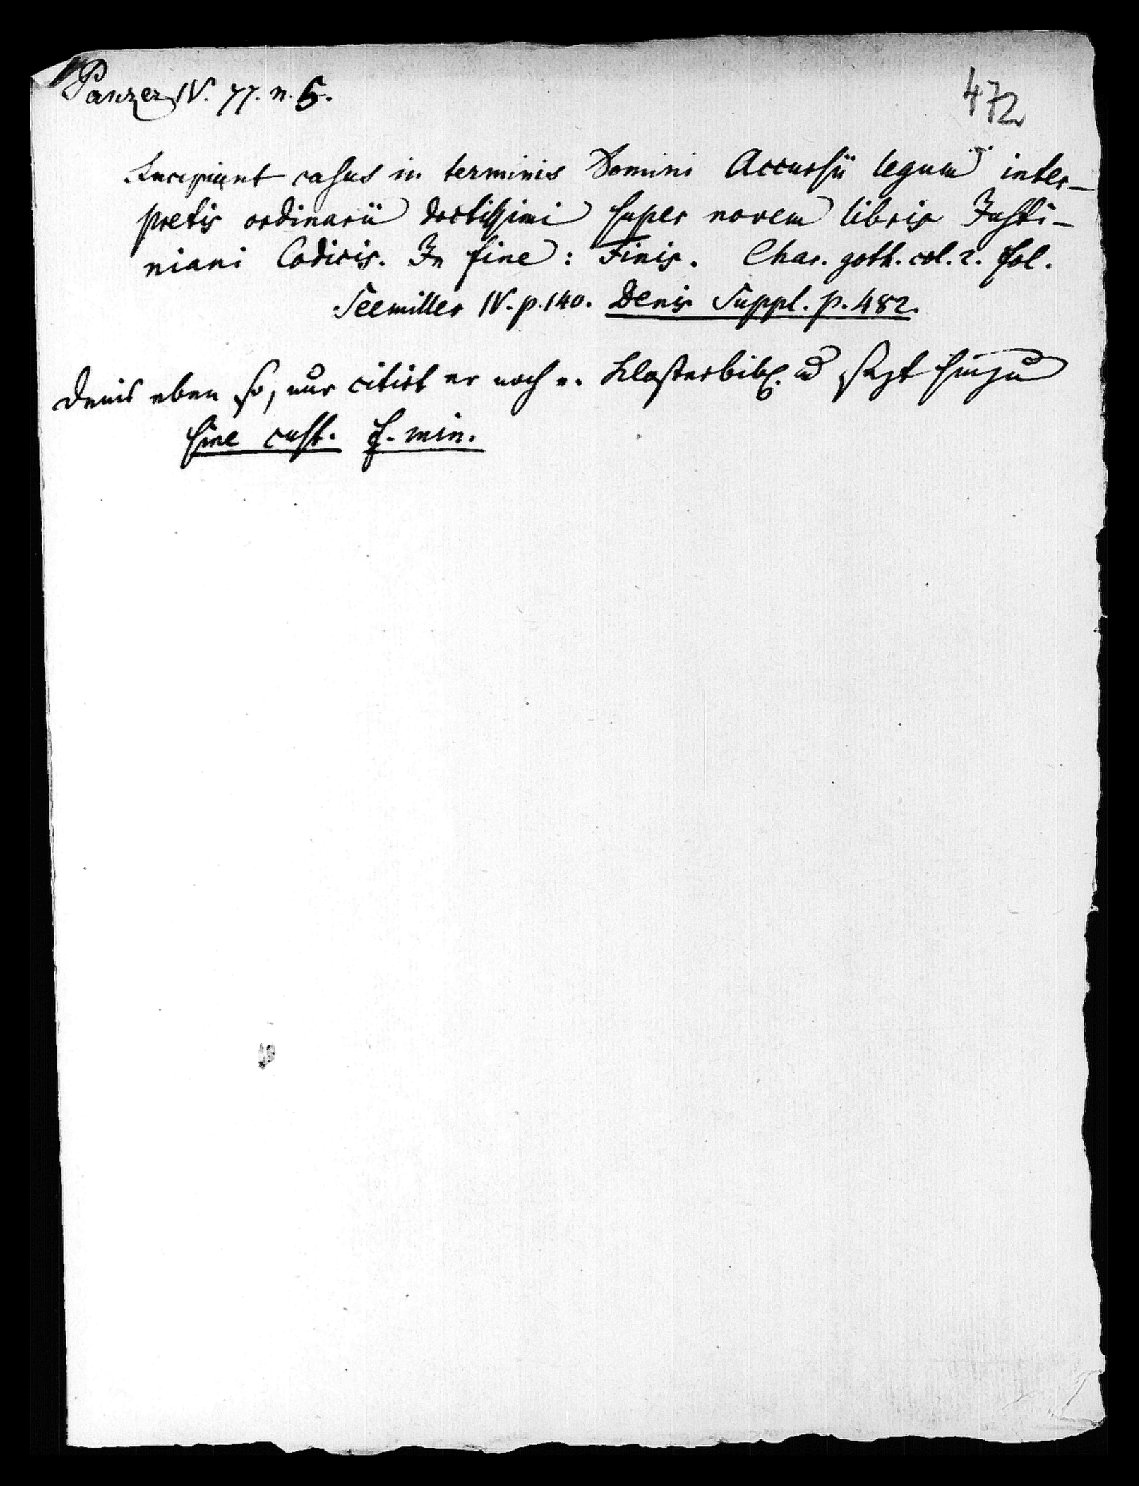 Panzer IV. 77. n. 5.
472
Incipiunt casus in terminis Domini Accursii legum inter-
pretis ordinarii doctissimi super novem libris Justi-
niani Codicis. In fine: Finis. Char. goth. col. 2. fol.
Seemiller IV. p. 140. Denis Suppl. p. 482.
Denis eben so, nur citirt er noch e. Klosterbibl. u sagt hinzu
sine cust. f. min.